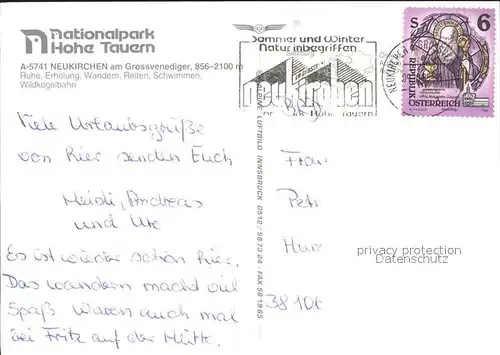 Nationalpark
Hohe Tauern
A-5741 NEUKIRCHEN am Grossvenediger, 856-2100 m
Ruhe, Erholung, Wandern, Reiten, Schwimmen,
Wildkogelbahn
Sommer und Winter
Natur inbegriffen
neukirchen
Hohe Tauern
NEUKIRCHEN
S 6
REPUBLIK
ÖSTERREICH
Viele Urlaubsgrüße
von hier senden Euch
Heidi, Andreas
und Ute
Es ist wieder schön hier.
Das wandern macht viel
Spaß waren auch mal
bei Fritz auf der Hütte.
LUFTBILD INNSBRUCK 0512 / 58 73 24 FAX 58 19 65
Frau
Petr
38106
privacy protection
Datenschutz